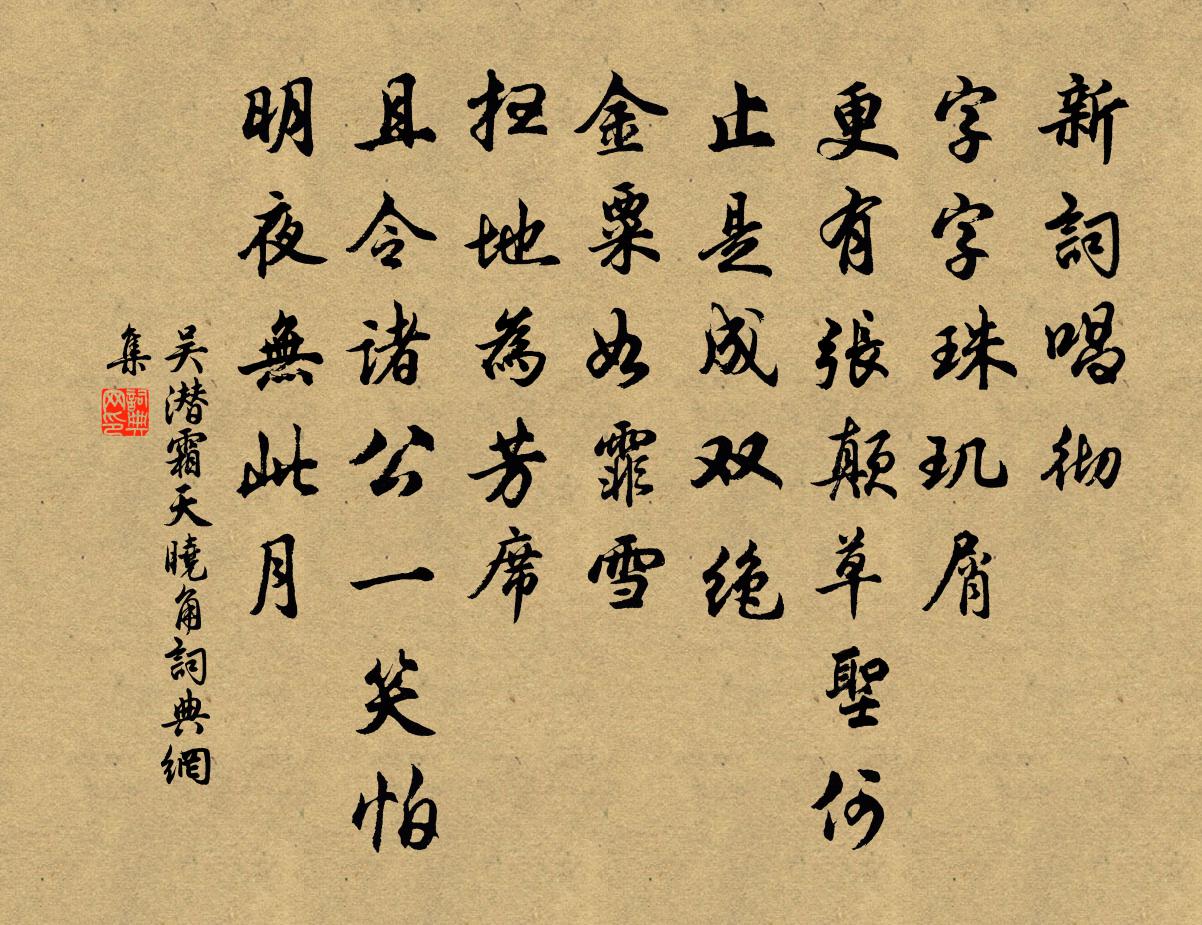 新詞唱彻
字字珠玑屑
更有張颠草聖何
止是成双绝
金粟如霏雪
扫地為芳席
且令诸公一笑怕
明夜無此月
吴潜霜天曉角詞典網
集
詞典网印